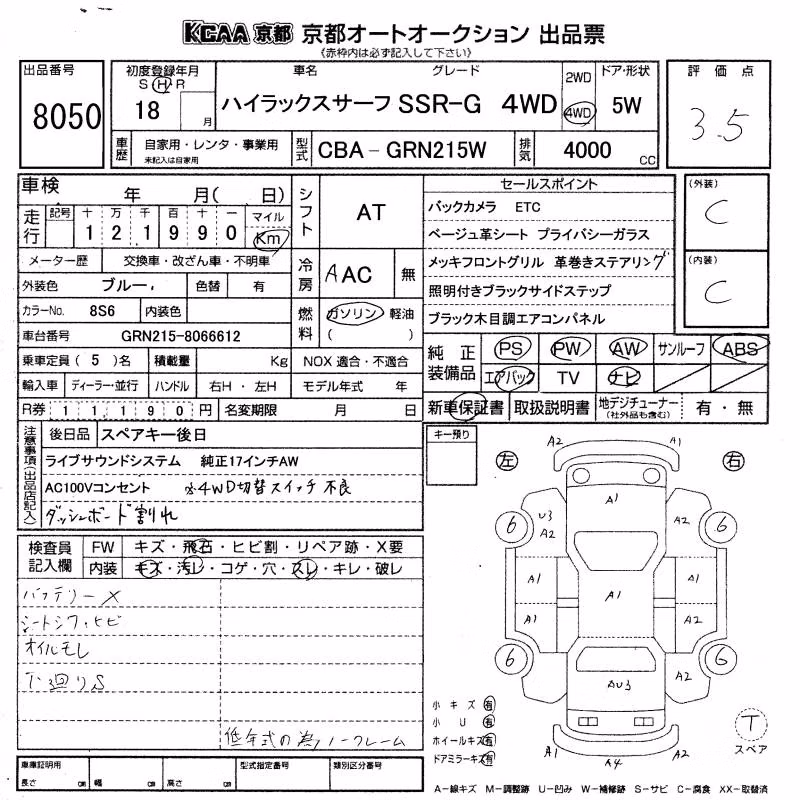 KCAA 京都 京都オートオークション 出品票
《赤枠内は必ず記入して下さい》
出品番号 8050
初度登録年月 S H R 18 月
車名 グレード ハイラックスサーフ SSR-G 4WD
2WD 4WD
ドア・形状 5W
評価点 3.5
車歴 自家用・レンタ・事業用 未記入は自家用
型式 CBA-GRN215W
排気 4000 CC
車検 年 月( 日)
シフト AT
走行 記号 十 万 千 百 十 一 マイル
1 2 1 9 9 0 Km
メーター歴 交換車・改ざん車・不明車
冷房 AAC 無
外装色 ブルー. 色替 有
カラーNo. 8S6 内装色
燃料 ガソリン 軽油 ( )
車台番号 GRN215-8066612
乗車定員 ( 5 )名 積載量 Kg NOX 適合・不適合
輸入車 ディーラー・並行 ハンドル 右H・左H モデル年式 年
R券 1 1 1 9 0 円 名変期限 月 日
セールスポイント
バックカメラ ETC
ベージュ革シート プライバシーガラス
メッキフロントグリル 革巻きステアリング
照明付きブラックサイドステップ
ブラック木目調エアコンパネル
(外装) C
(内装) C
純正装備品 PS PW AW サンルーフ ABS
エアバック TV ナビ
新車保証書 取扱説明書 地デジチューナー (社外品も含む) 有・無
注意事項(出品店記入)
後日品 スペアキー後日
ライブサウンドシステム 純正17インチAW
AC100Vコンセント ※4WD切替スイッチ不良
ダッシュボード割れ
キー預り
検査員記入欄 FW キズ・飛石・ヒビ割・リペア跡・X要
内装 キズ・汚レ・コゲ・穴・スレ・キレ・破レ
バッテリーX
シートシワ,ヒビ
オイルモレ
下廻りS
低年式の為ノークレーム
左 右
A2 A1
A1
6 U3 A2 A2 6
A1 A1 A1
A1 A2
6 A2 6
AU3
A1 A4 A2
小キズ 有
小U 有
ホイールキズ 有
ドアミラーキズ 有
T スペア
車庫証明用 長さ cm 幅 cm 高さ cm 型式指定番号 類別区分番号
A-線キズ M-調整跡 U-凹み W-補修跡 S-サビ C-腐食 XX-取替済